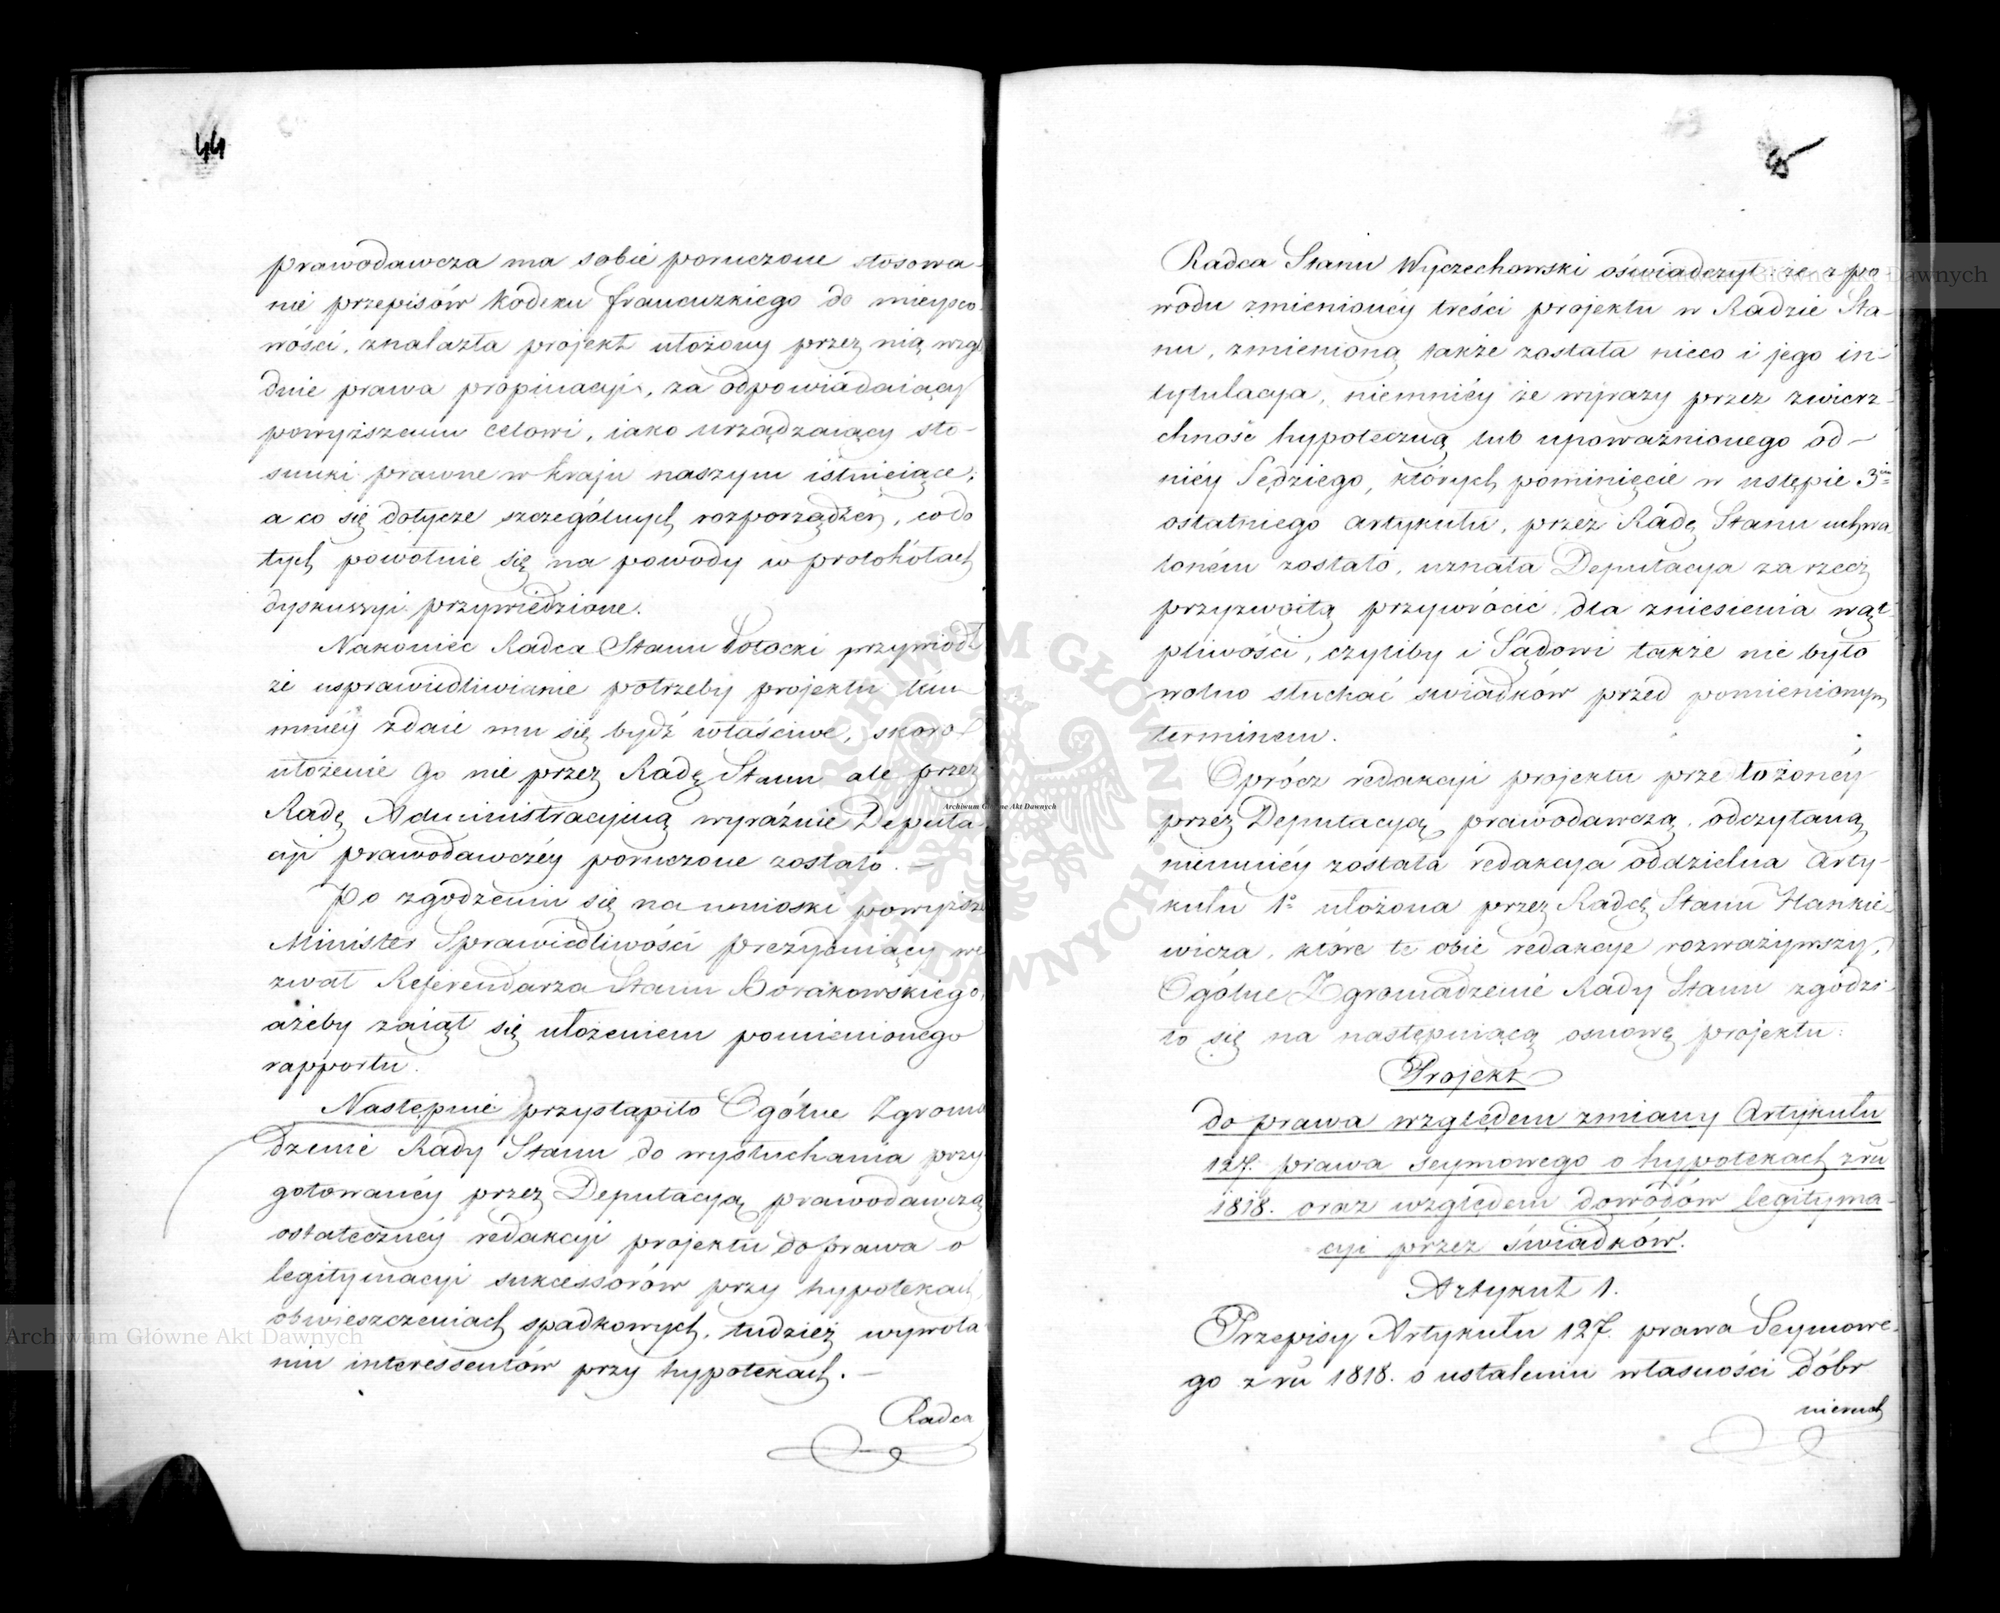 44
prawodawcza ma sobie poruczone stosowa-
nie przepisów kodexu francuzkiego do mieysco-
wości, znalazła projekt ułożony przez nią wzglę
dnie prawa propinacyi, za odpowiadaiący
powyższemu celowi, iako urządzaiący sto-
sunki prawne w kraju naszym istnieiące;
a co się dotycze szczególnych rozporządzeń, co do
tych powołuie się na powody w protokółach
dyskussyi przywiedzione.
Nakoniec Radca Stanu Potocki przywiódł
że usprawiedliwianie potrzeby projektu tém
mniéy zdaie mu się bydź właściwe, skoro
ułożenie go nie przez Radę Stanu ale przez
Radę Administracyiną wyraźnie Deputa
cyi prawodawczéy poruczone zostało. —
Po zgodzeniu się na wnioski powyższe
Minister Sprawiedliwości prezyduiący we
zwał Referendarza Stanu Borakowskiego,
ażeby zaiął się ułożeniem pomienionego
rapportu.
Następnie przystąpiło Ogólne Zgroma
dzenie Rady Stanu do wysłuchania przy
gotowanéy przez Deputacyą prawodawczą
ostatecznéy redakcyi projektu do prawa o
legitymacyi sukcessorów przy hypotekach,
obwieszczeniach spadkowych, tudzież wywoła
niu interessentów przy hypotekach. —
Radca
45
Radca Stanu Wyczechowski oświadczył: że z po
wodu zmienionéy treści projektu w Radzie Sta-
nu, zmienioną także została nieco i jego in-
tytulacya, niemniéy że wyrazy przez zwierz-
chność hypoteczną lub upoważnionego od-
niéy Sędziego, których pominięcie w ustępie 3cim
ostatniego artykułu, przez Radę Stanu uchwa-
loném zostało, uznała Deputacya za rzecz
przyzwoitą przywrócić dla zniesienia wąt-
pliwości, czyliby i Sądowi także nie było
wolno słuchać świadków przed pomienionym
terminem.
Oprócz redakcyi projektu przełożonéy
przez Deputacyą prawodawczą, odczytaną
niemniéy została redakcya oddzielna Arty-
kułu 1o ułożona przez Radcę Stanu Hankie-
wicza, które te obie redakcye rozważywszy,
Ogólne Zgromadzenie Rady Stanu zgodzi-
ło się na następuiącą osnowę projektu:
Projekt
do prawa względem zmiany Artykułu
127. prawa seymowego o hypotekach z ru
1818. oraz względem dowodów legityma-
cyi przez świadków.
Artykuł 1.
Przepisy Artykułu 127. prawa Seymowe-
go z ru 1818. o ustaleniu własności dóbr
nieruch
Archiwum Główne Akt Dawnych
Archiwum Główne Akt Dawnych
Archiwum Główne Akt Dawnych
ARCHIWUM GŁÓWNE AKT DAWNYCH